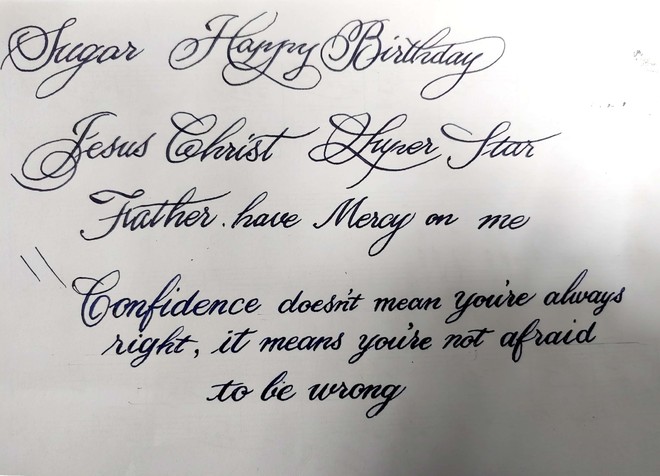 Sugar Happy Birthday
Jesus Christ Super Star
Father have Mercy on me
Confidence doesn't mean you're always
right, it means you're not afraid
to be wrong